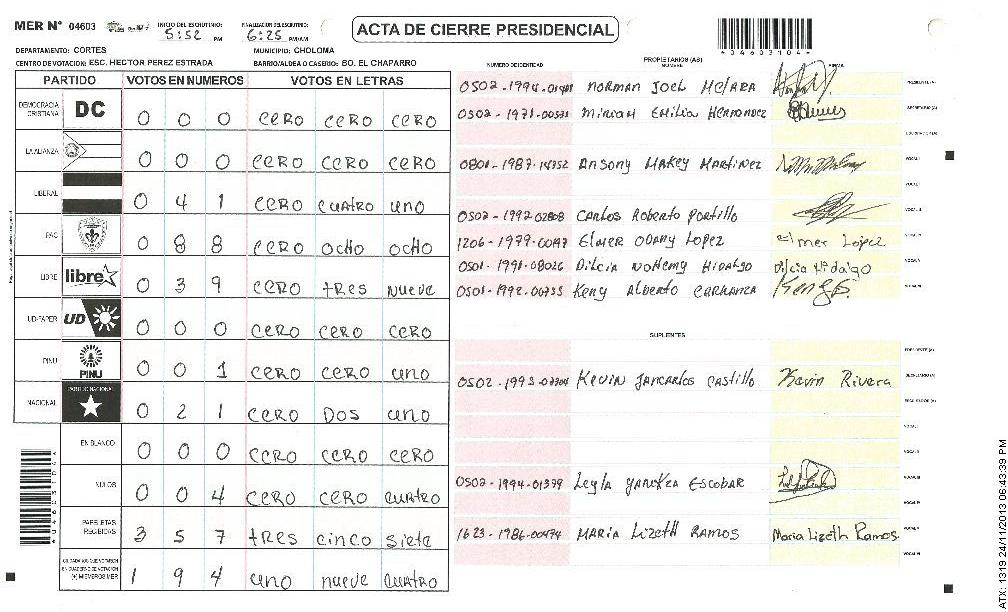 MER N° 04603 INICIO DEL ESCRUTINIO: 5:52 PM FINALIZACION DEL ESCRUTINIO: 6:25 PM/AM
ACTA DE CIERRE PRESIDENCIAL
*04603104*
DEPARTAMENTO: CORTES MUNICIPIO: CHOLOMA
CENTRO DE VOTACION: ESC. HECTOR PEREZ ESTRADA BARRIO/ALDEA O CASERIO: BO. EL CHAPARRO
PARTIDO VOTOS EN NUMEROS VOTOS EN LETRAS
DEMOCRACIA CRISTIANA DC 0 0 0 CERO CERO CERO
LA ALIANZA 0 0 0 CERO CERO CERO
LIBERAL 0 4 1 CERO CUATRO UNO
PAC 0 8 8 CERO OCHO OCHO
LIBRE libre 0 3 9 CERO TRES NUEVE
UD-FAPER UD 0 0 0 CERO CERO CERO
PINU PINU 0 0 1 CERO CERO UNO
NACIONAL PARTIDO NACIONAL 0 2 1 CERO DOS UNO
EN BLANCO 0 0 0 CERO CERO CERO
NULOS 0 0 4 CERO CERO CUATRO
PAPELETAS RECIBIDAS 3 5 7 TRES CINCO SIETE
CIUDADANOS QUE VOTARON EN CUADERNO DE VOTACION (+) MIEMBROS MER 1 9 4 UNO NUEVE CUATRO
NUMERO DE IDENTIDAD PROPIETARIOS (AS) NOMBRE FIRMA
NORMAN JOEL MEJARA PRESIDENTE (A)
0502-1971-00571 Miriam Emilia Hernandez SECRETARIO (A)
ESCRUTADOR (A)
0801-1987-14352 Ansony Makey Martinez VOCAL I
VOCAL II
0502-1992-02808 Carlos Roberto Portillo VOCAL III
1206-1979-00117 Elmer Odany Lopez Elmer López VOCAL IV
0501-1991-08026 Dilcia Nohemy Hidalgo Dilcia Hidalgo VOCAL V
0501-1992-00735 Keny Alberto Carranza VOCAL VI
SUPLENTES
PRESIDENTE (A)
Kevin Jancarlos Castillo Kevin Rivera SECRETARIO (A)
ESCRUTADOR (A)
VOCAL I
VOCAL II
0502-1994-01379 Leyla Escobar VOCAL III
VOCAL IV
1623-1986-00474 Maria Lizeth Ramos Maria Lizeth Ramos VOCAL V
VOCAL VI
*04603104*
ATX: 1319 24/11/2013 06:43:39 PM